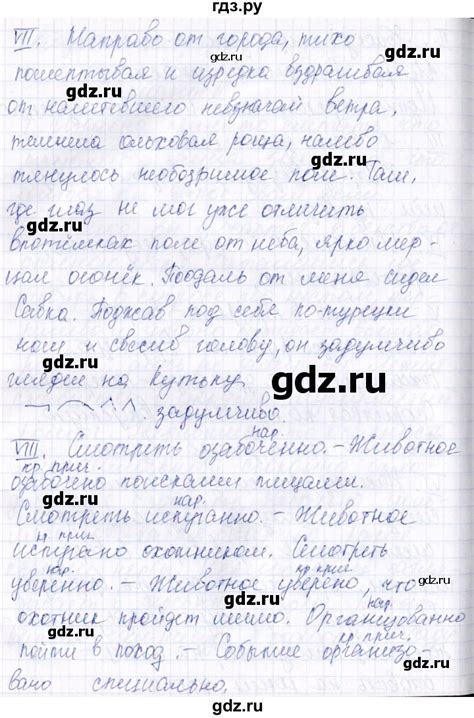 гдз.ру
VII. Направо от города, тихо
пошептывая и изредка вздрагивая
от налетевшего невзначай ветра,
темнела ольховая роща, налево
тянулось необозримое поле. Там,
где глаз не мог уже отличить
впотёмках поле от неба, ярко мер-
цал огонёк. Поодаль от меня сидел
Савка. Поджав под себя по-турецки
ноги и свесив голову, он задумчиво
глядел на Кутьку.
задумчиво.
нар.
VIII. Смотреть озабоченно. – Животное
кр. прич.
озабочено поисками пищи.
нар.
Смотреть испуганно. – Животное
кр. прич.
испугано охотником. Смотреть
нар. кр. прич.
уверенно. – Животное уверено, что
нар.
охотник пройдет мимо. Организованно
кр. прич.
пойти в поход. – Событие организо-
вано специально.
gdz.ru
gdz.ru
gdz.ru
gdz.ru
gdz.ru
gdz.ru
gdz.ru
gdz.ru
gdz.ru
gdz.ru
gdz.ru
gdz.ru
gdz.ru